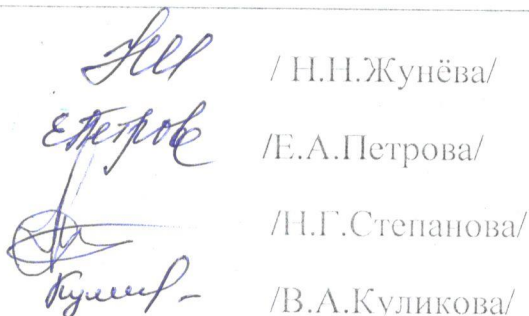 / Н.Н.Жунёва/
Е.Петров /Е.А.Петрова/
/Н.Г.Степанова/
/В.А.Куликова/